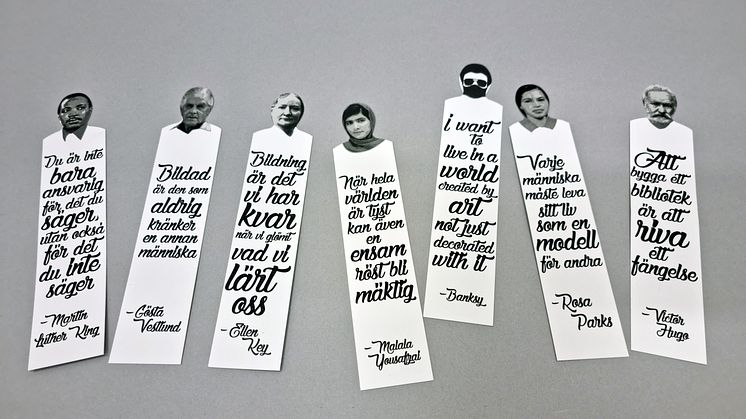 Du är inte
bara
ansvarig
för det du
säger,
utan också
för det
du inte
säger
-Martin
Luther King
Bildad
är den som
aldrig
kränker
en annan
människa
-Gösta
Vestlund
Bildning
är det
vi har
kvar
när vi glömt
vad vi
lärt
oss
-Ellen
Key
När hela
världen
är tyst
kan även
en
ensam
röst bli
mäktig
-Malala
Yousafzai
i want
to
live in a
world
created by
art
not just
decorated
with it
-Banksy
Varje
människa
måste leva
sitt liv
som en
modell
för andra
-Rosa
Parks
Att
bygga ett
bibliotek
är att
riva
ett
fängelse
-Victor
Hugo